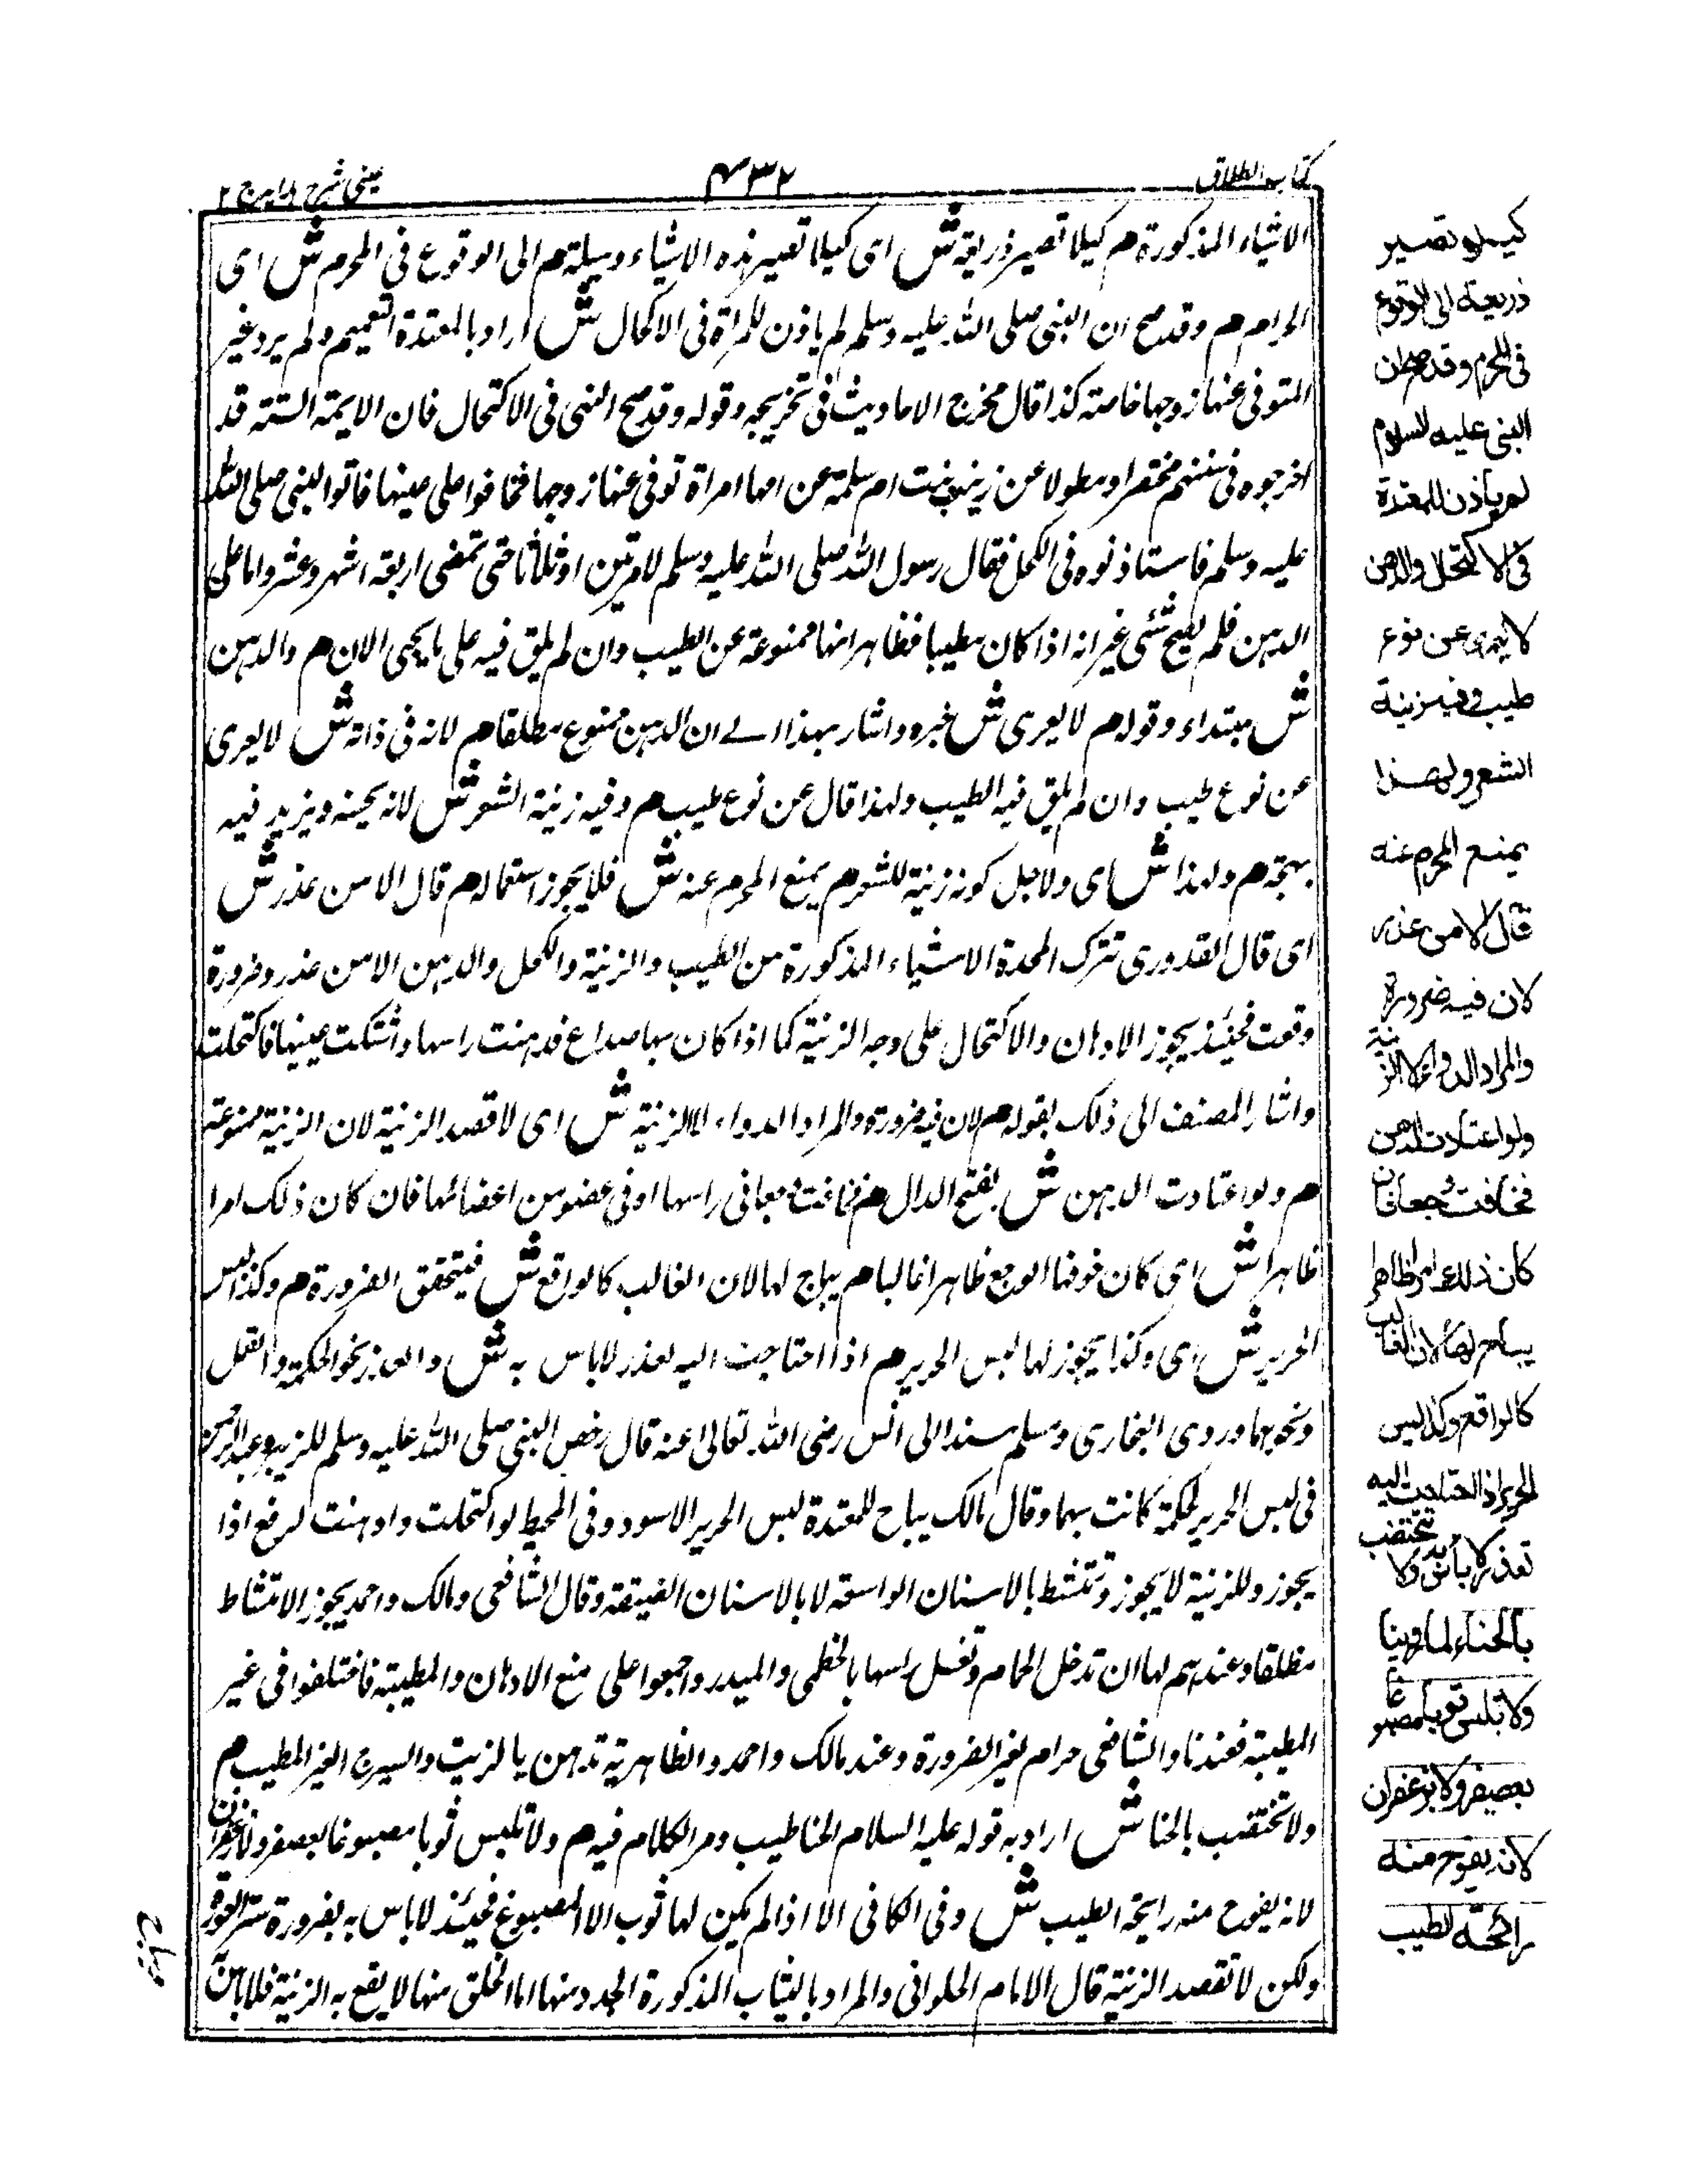 كتاب الطلاق
٤٣٢
عينى شرح هدايه ج ٢
الاشياء المذكورة م كيلا تصير ذريعة ش اى كيلا تصير هذه الاشياء وسيلة م الى الوقوع فى المحرم ش اى
الحرام م وقد صح ان النبى صلى الله عليه وسلم لم ياذن للمراة فى الاكحال ش اراد بالمعتدة التعميم ولم يرد غير
المتوفى عنها زوجها خاصته كذا قال مخرج الاحاديث فى تخريجه وقوله وقد صح النهى فى الاكتحال فان الايمة الستة قد
اخرجوه فى سننهم مختصرا ومطولا عن زينب بنت ام سلمة عن امها امراة توفى عنها زوجها فخافوا على عينها فاتوا النبى صلى الله
عليه وسلم فاستاذنوه فى الكحل فقال رسول الله صلى الله عليه وسلم لا مرتين او ثلاثا حتى تمضى اربعة اشهر وعشر واما على
الدهن فلم يصح شئ غير انه اذا كان مطيبا فظاهر انها ممنوعة عن الطيب وان لم يلق فيه على ما يجى الان م والدهن
ش مبتداء وقوله م لا يعرى ش خبره واشار بهذا الے ان الدهن ممنوع مطلقا م لانه فى ذاته ش لا يعرى
عن نوع طيب وان لم يلق فيه الطيب ولهذا قال عن نوع طيب م وفيه زينة الشعر ش لانه يحينه ويزيد فيه
بهجة م ولهذا ش اى ولاجل كونه زينة للشعر م يمنع المحرم عنه ش فلا يجوز استعماله م قال الا من عذر ش
اى قال القدورى تترك المحدة الاشياء المذكورة من الطيب والزينة والكحل والدهن الا من عذر وضرورة
وقعت فحينئذ يجوز الادهان والاكتحال على وجه الزينة كما اذا كان بها صداع فدهنت راسها واشتكت عينها فاكتحلت
واشار المصنف الى ذلك بقوله م لان فيه ضرورة والمراد الدواء لا الزينة ش اى لا قصد الزينة لان الزينة ممنوعة
م ولو اعتادت الدهن ش بفتح الدال م فخافت وجعا فى راسها او فى عضو من اعضائها فان كان ذلك امرا
ظاهرا ش اى كان خوفها الوجع ظاهرا غالبا م يباح لها لان الغالب كالواقع ش فيتحقق الضرورة م وكذا لبس
الحرير ش اى وكذا يجوز لها لبس الحرير م اذا احتاجت اليه لعذر لاباس به ش والعذر نحو الحكة والقمل
ونحوهما وروى البخارى ومسلم سندا الى انس رضى الله تعالى عنه قال رخص النبى صلى الله عليه وسلم للزبير وعبد الرحمن
فى لبس الحرير لحكمة كانت بهما وقال مالك يباح للمعتدة لبس الحرير الاسود وفى المحيط لو اكتحلت وادهنت لرفع اذا
يجوز وللزينة لا يجوز وتمتشط بالاسنان الواسعة لا بالاسنان الضيقة وقال الشافعى ومالك واحمد يجوز الامتشاط
مطلقا وعندهم لها ان تدخل الحمام وتغسل راسها بالخطمى والسدر واجمعوا على منع الادهان والمطيبة فاختلفوا فى غير
المطيبة فعندنا والشافعى حرام لغير الضرورة وعند مالك واحمد والظاهرية تدهن بالزيت والسيرج الغير المطيب م
ولا تختضب بالحنا ش اراد به قوله عليه السلام الحنا طيب ومر الكلام فيه م ولا تلبس ثوبا مصبوغا بعصفر ولا بزعفران
لانه يفوح منه رايحة الطيب ش وفى الكافى الا اذا لم يكن لها ثوب الا المصبوغ فحينئذ لاباس به بضرورة ستر العورة
ولكن لا تقصد الزينة قال الامام الحلوانى والمراد بالثياب المذكورة الجدد منها اما الخلق منها لا يقع به الزينة فلا باس
كيلا تصير
ذريعة الى الوقوع
فى المحرم وقد صح ان
النبى عليه السلام
لم يأذن للمعتدة
فى الاكتحال والدهن
لا يعرى عن نوع
طيب وفيه زينة
الشعر ولهذا
يمنع المحرم عنه
قال الا من عذر
لان فيه ضرورة
والمراد الدواء لا الزينة
ولو اعتادت الدهن
فخافت وجعا فان
كان ذلك امرا ظاهرا
يباح لها لان الغالب
كالواقع وكذا لبس
الحرير اذا احتاجت اليه
لعذر لا بأس به ولا تختضب
بالحناء لما روينا
ولا تلبس ثوبا مصبوغا
بعصفر ولا بزعفران
لانه يفوح منه
رائحة الطيب